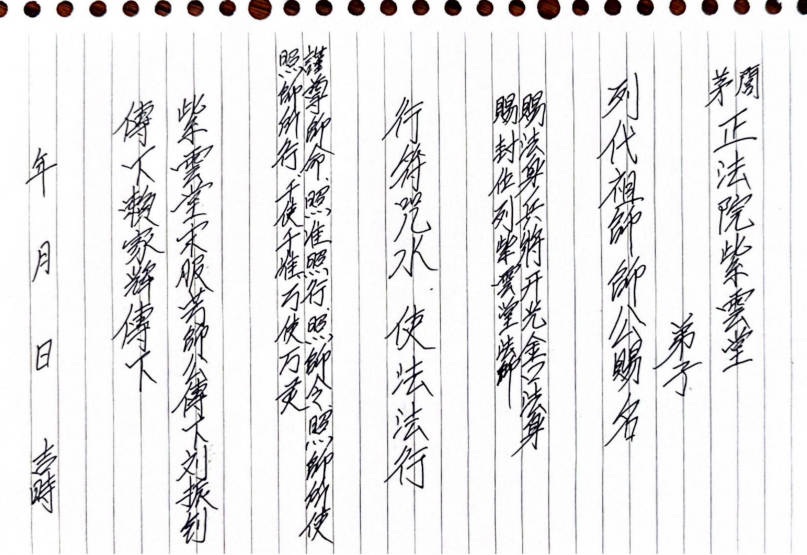 閭茅正法院紫雲堂
弟子
列代祖師師公賜名
賜法身兵將开光金口法身
賜封位列紫雲堂法師
行符咒水 使法法行
謹尊師命、照准照行照師令、照師所使
照師所行 千使千准万使万灵
紫雲堂宋服芳師公傳下刘振钊
傳下賴家輝傳下
年 月 日 吉時